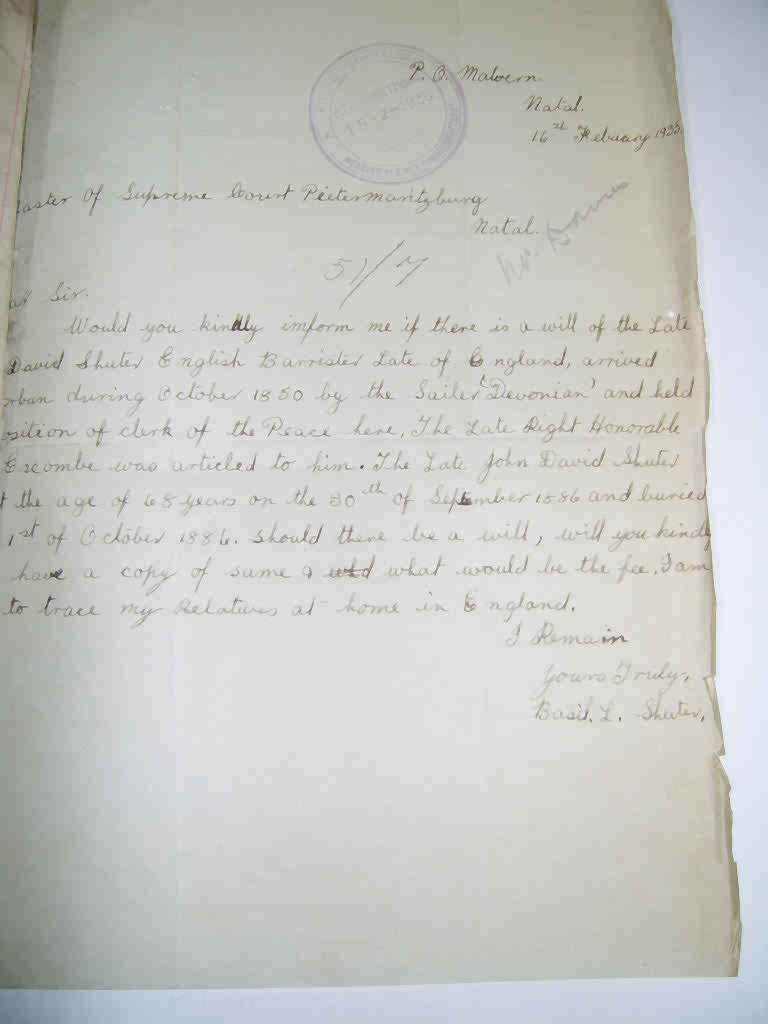 P. O. Malvern.
Natal.
16st Febuary 1935.
aster Of Supreme Court Pietermaritzburg
Natal.
51/7
ar Sir.
Would you kindly imform me if there is a will of the Late
David Shuter English Barrister Late of England, arrived
rban during October 1850 by the Sailer 'Devonian' and held
osition of clerk of the Peace here, The Late Right Honorable
Escombe was articled to him. The Late John David Shuter
t the age of 68 years on the 30th of September 1886 and buried
1st of October 1886. Should there be a will, will you kindly
have a copy of same & what would be the fee. I am
to trace my Relatives at home in England.
I Remain
Yours Truly,
Basil. L. Shuter.